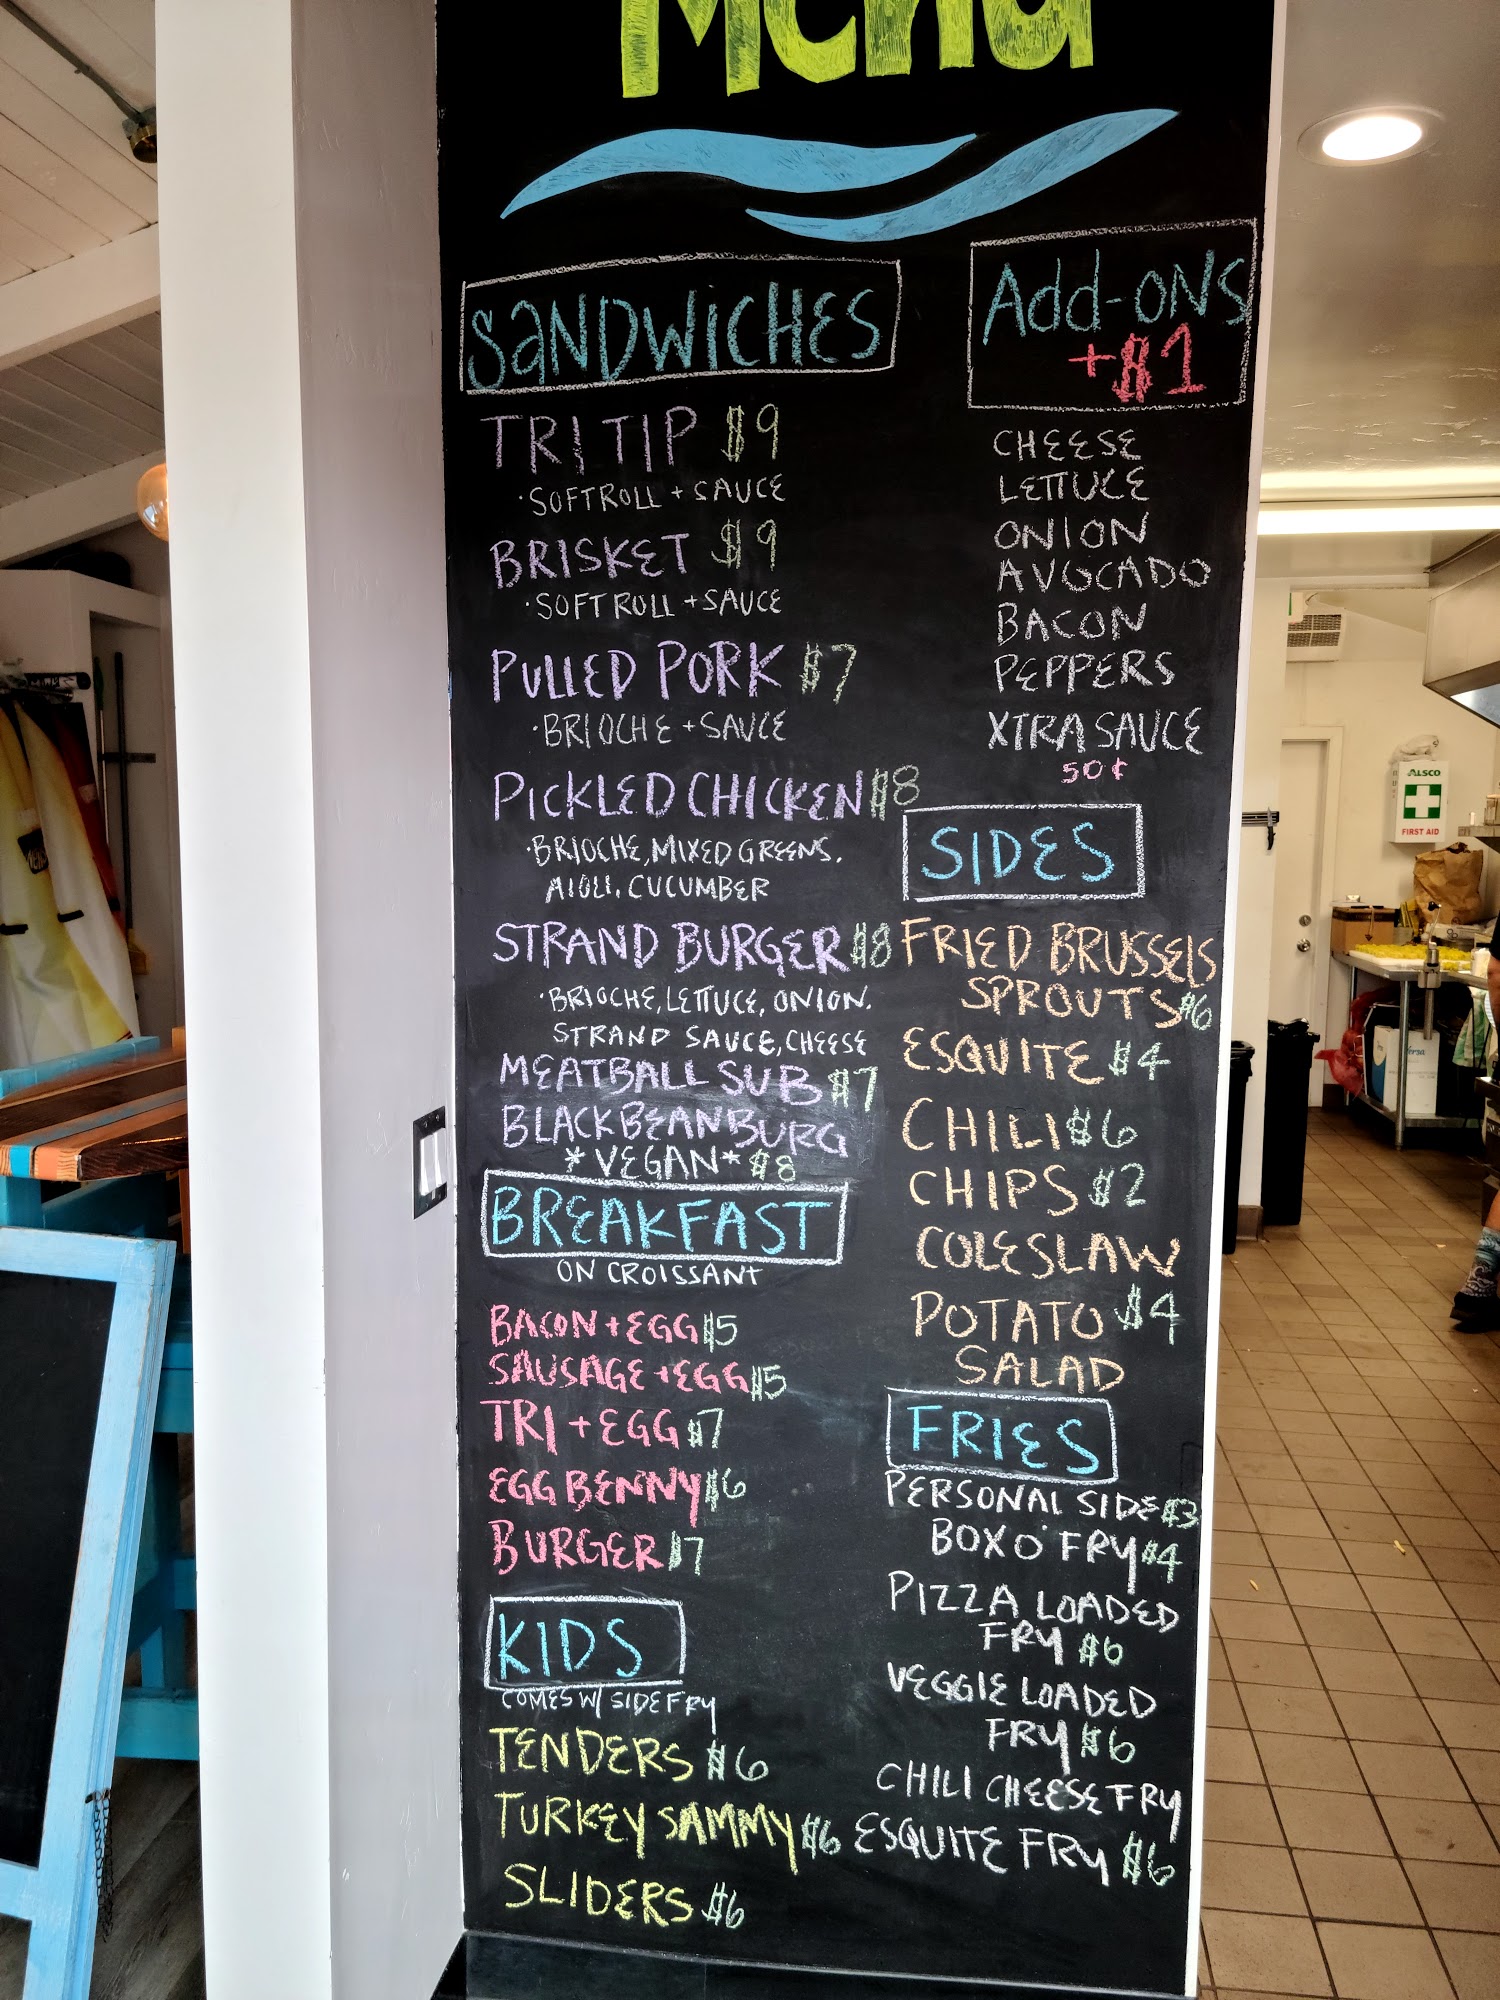 Menu
SANDWICHES
TRI TIP $9
·SOFT ROLL + SAUCE
BRISKET $9
·SOFT ROLL + SAUCE
PULLED PORK $7
·BRIOCHE + SAUCE
PICKLED CHICKEN $8
·BRIOCHE, MIXED GREENS.
AIOLI, CUCUMBER
STRAND BURGER $8
·BRIOCHE, LETTUCE, ONION.
STRAND SAUCE, CHEESE
MEATBALL SUB $7
BLACK BEAN BURG
*VEGAN* $8
BREAKFAST
ON CROISSANT
BACON + EGG $5
SAUSAGE + EGG $5
TRI + EGG $7
EGG BENNY $6
BURGER $7
KIDS
COMES W/ SIDE FRY
TENDERS $6
TURKEY SAMMY $6
SLIDERS $6
Add-ONS
+$1
CHEESE
LETTUCE
ONION
AVOCADO
BACON
PEPPERS
XTRA SAUCE
50¢
SIDES
FRIED BRUSSELS
SPROUTS $6
ESQUITE $4
CHILI $6
CHIPS $2
COLESLAW
POTATO $4
SALAD
FRIES
PERSONAL SIDE $3
BOX O' FRY $4
PIZZA LOADED
FRY $6
VEGGIE LOADED
FRY $6
CHILI CHEESE FRY
ESQUITE FRY $6
ALSCO
FIRST AID